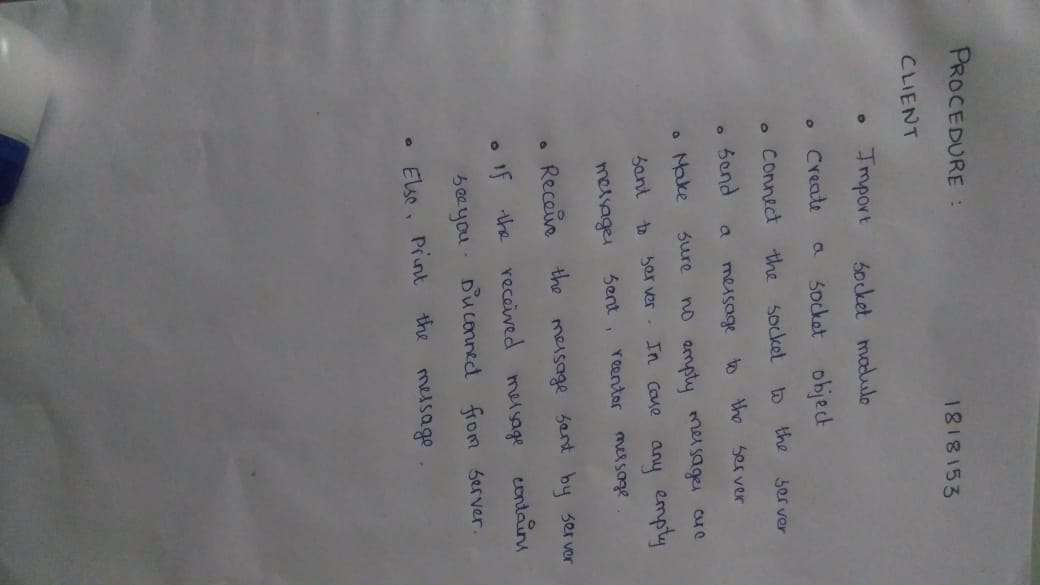 PROCEDURE : 1818153
CLIENT
• Import socket module
• Create a socket object
• Connect the socket to the server
• Send a message to the server
• Make sure no empty messages are
sent to server. In case any empty
messages sent, reenter message.
• Receive the message sent by server
• If the received message contains
seeyou. Disconnect from server.
• Else, Print the message.